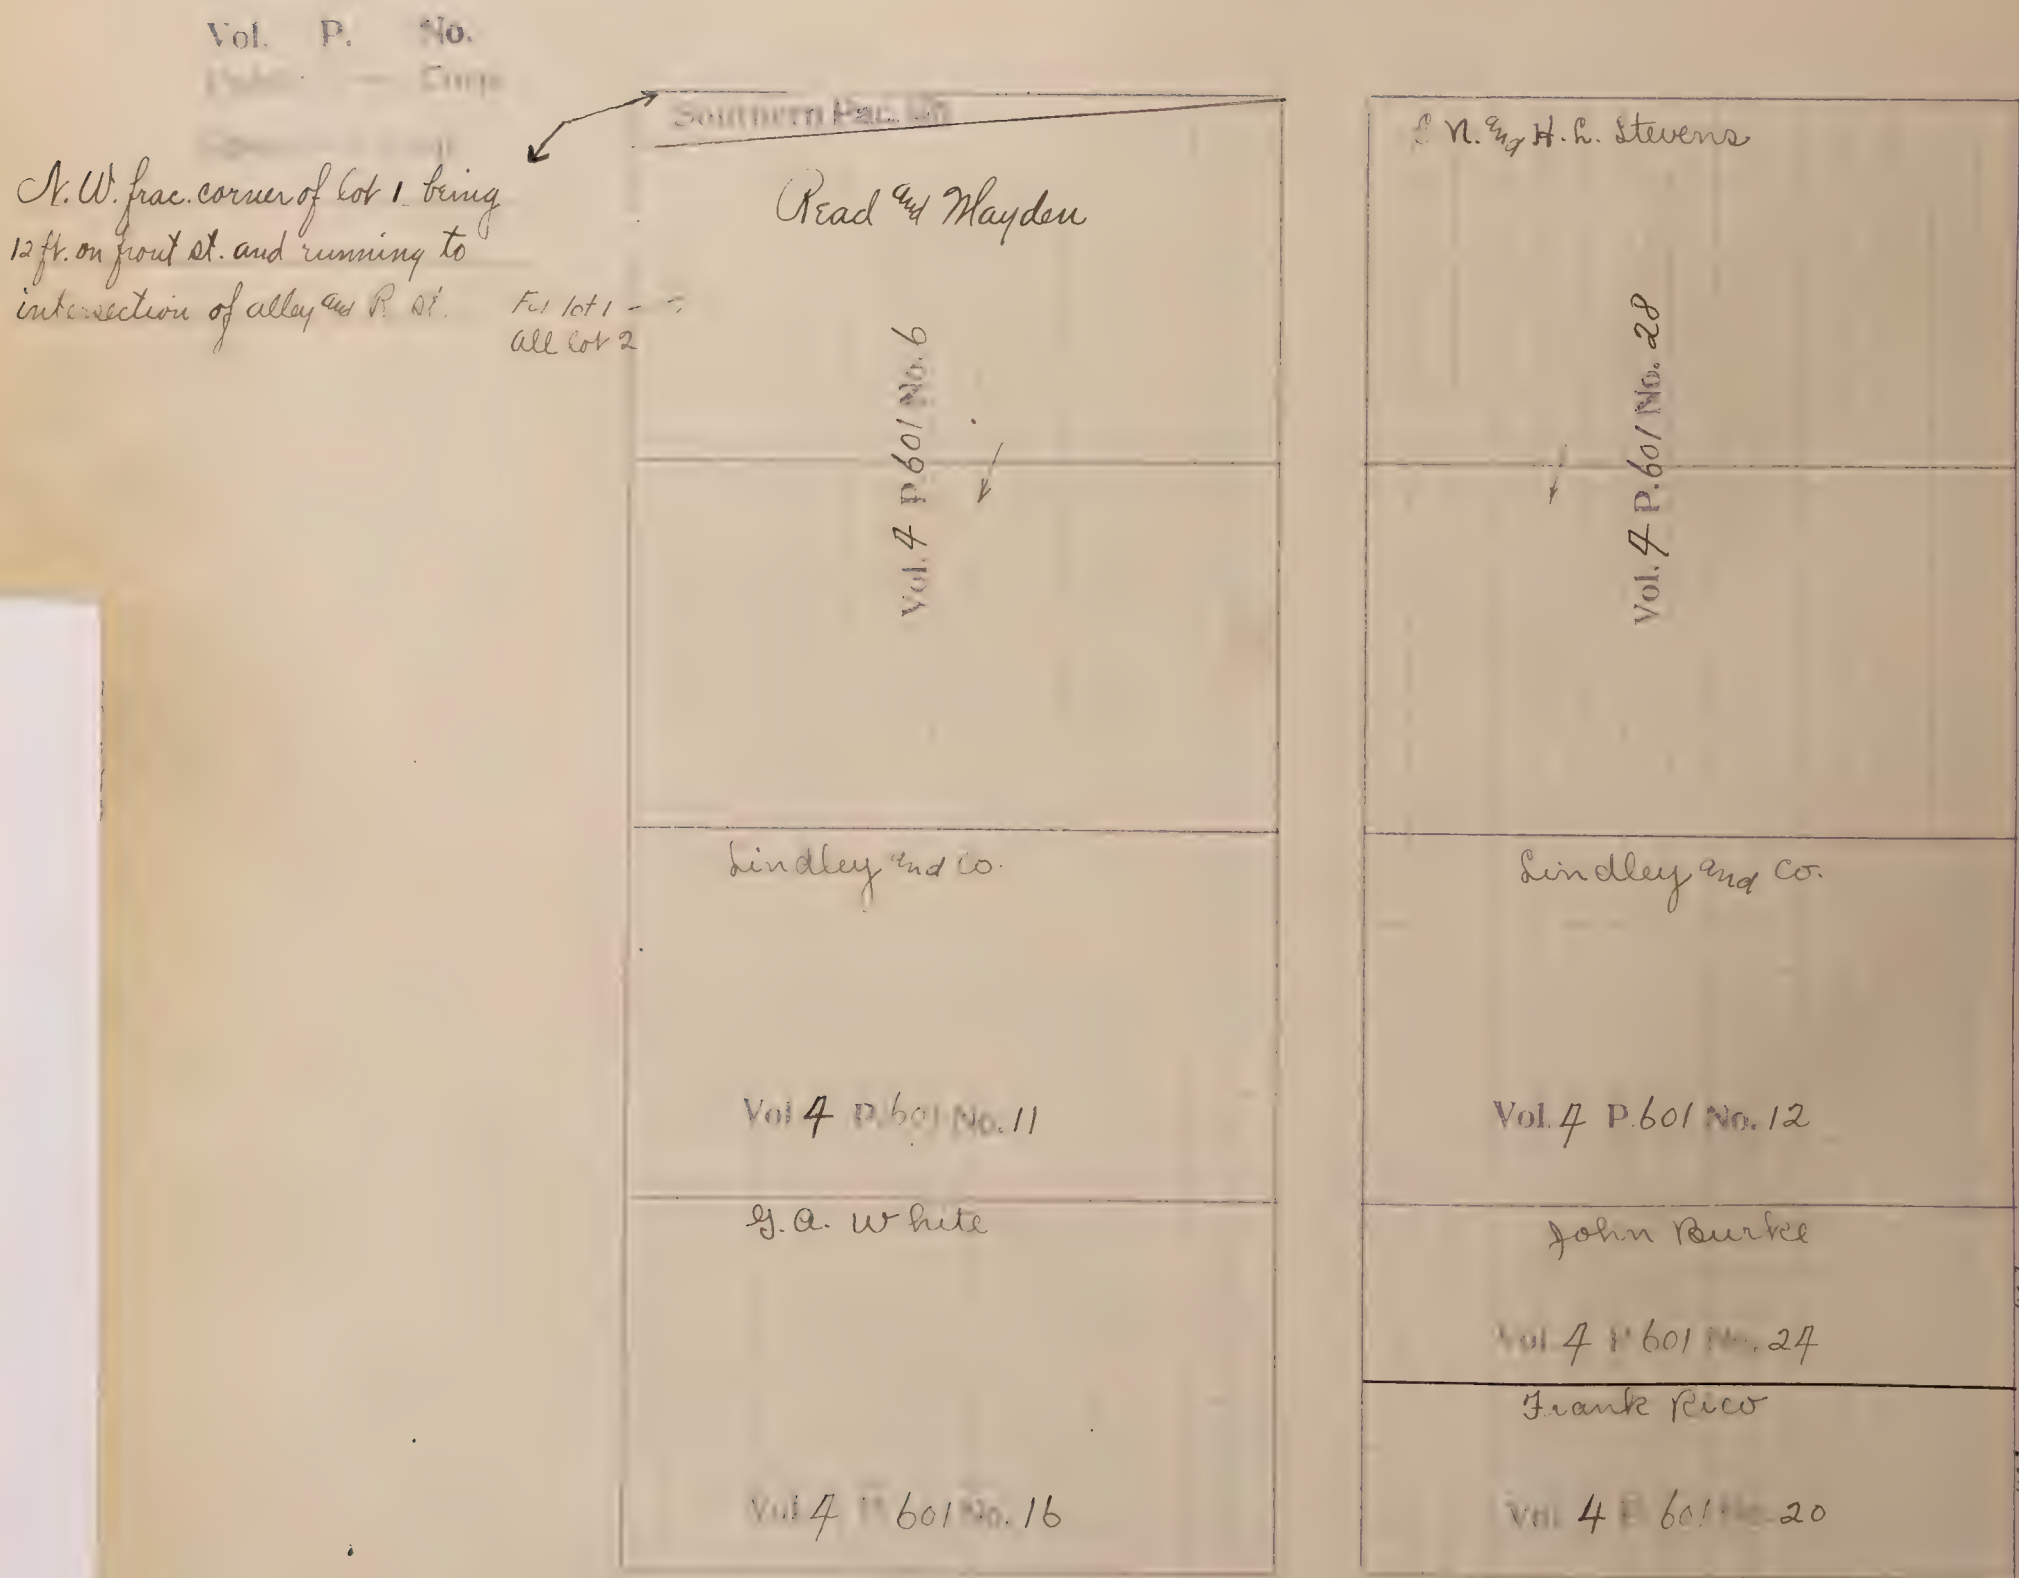 Vol. P. No.
Southern Pac.
N.W. frac. corner of lot 1 being
12 ft. on front st. and running to
intersection of alley and R. st.
lot 1
all lot 2
Read and Mayden
Vol. 4 P. 601 No. 6
Lindley and Co.
Vol 4 P. 601 No. 11
G. A. White
Vol 4 P. 601 No. 16
N. and H. L. Stevens
Vol. 4 P. 601 No. 28
Lindley and Co.
Vol. 4 P. 601 No. 12
John Burke
Vol. 4 P 601 No. 24
Frank Rico
Vol. 4 P 601 No. 20